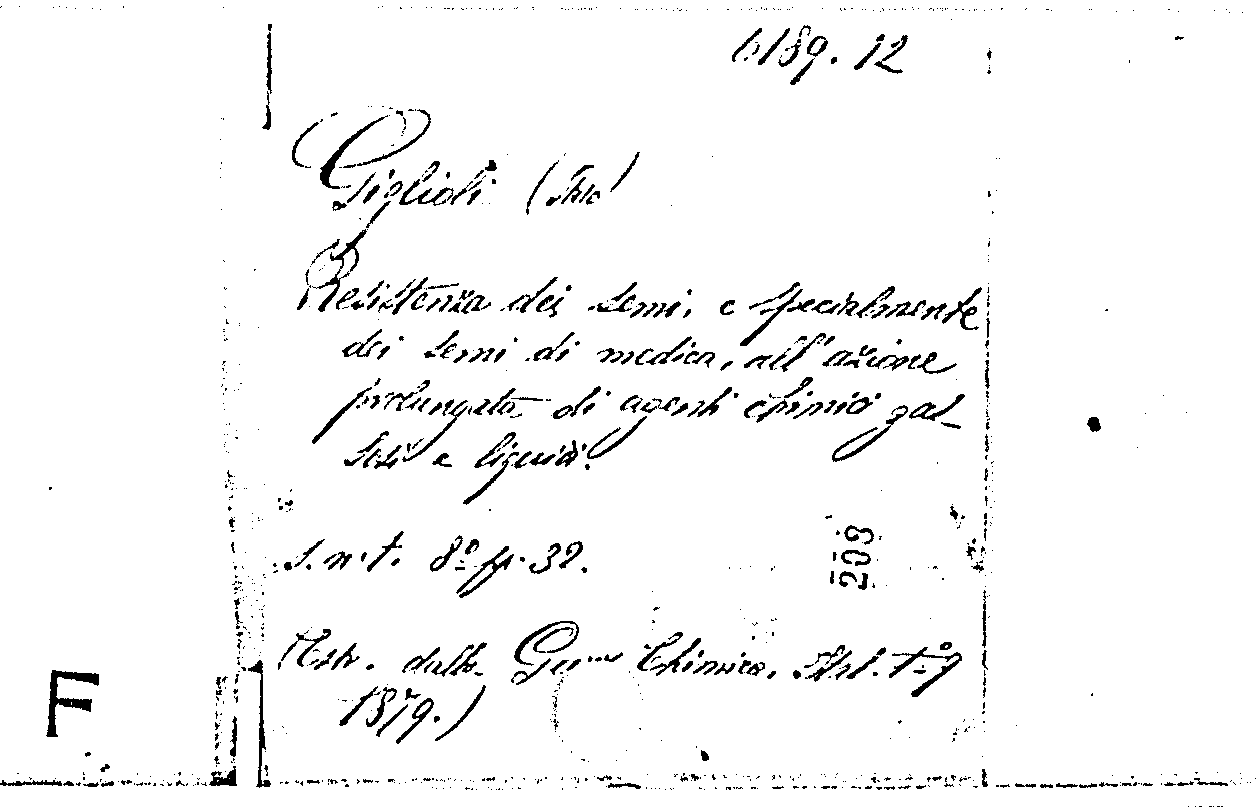 6189.12
Giglioli (Italo)
Resistenza dei semi, e specialmente
dei semi di medica, all'azione
prolungata di agenti chimici gas-
sosi e liquidi.
s.n.t. 8º pp. 32.
209
(Estr. dalla Gazz. Chimica, Ital. t. 9
1879.)
F